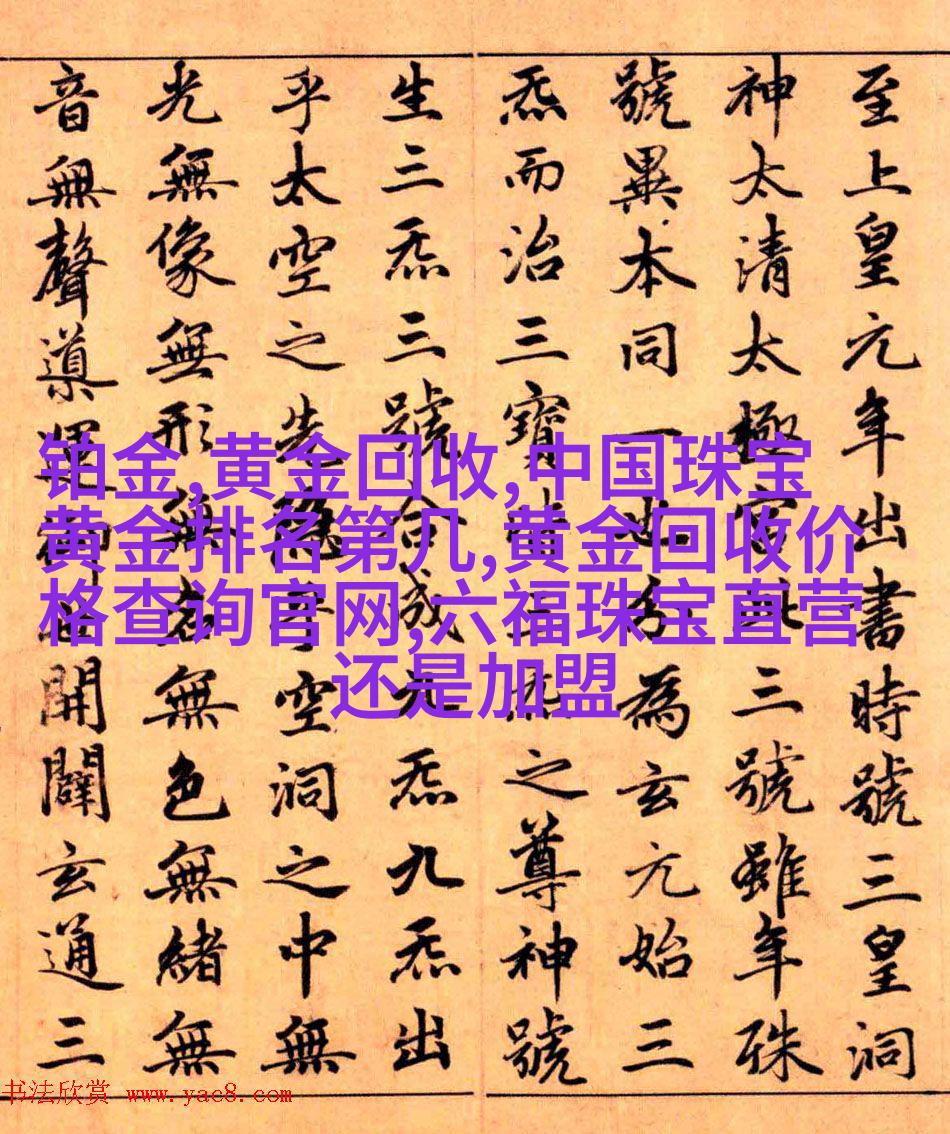 至上皇元年出書時號三皇洞
神太清太極宮此三號雖年殊
號異本同一也分為玄元始三
炁而治三寶皆三炁之尊神號
生三炁三號合成九炁九炁出
乎太空之先隱乎空洞之中無
光無像無形無名無色無緒無
音無聲導運御世開闢玄通三
铂金,黄金回收,中国珠宝
黄金排名第几,黄金回收价
格查询官网,六福珠宝直营
还是加盟
书法欣赏 www.yac8.com